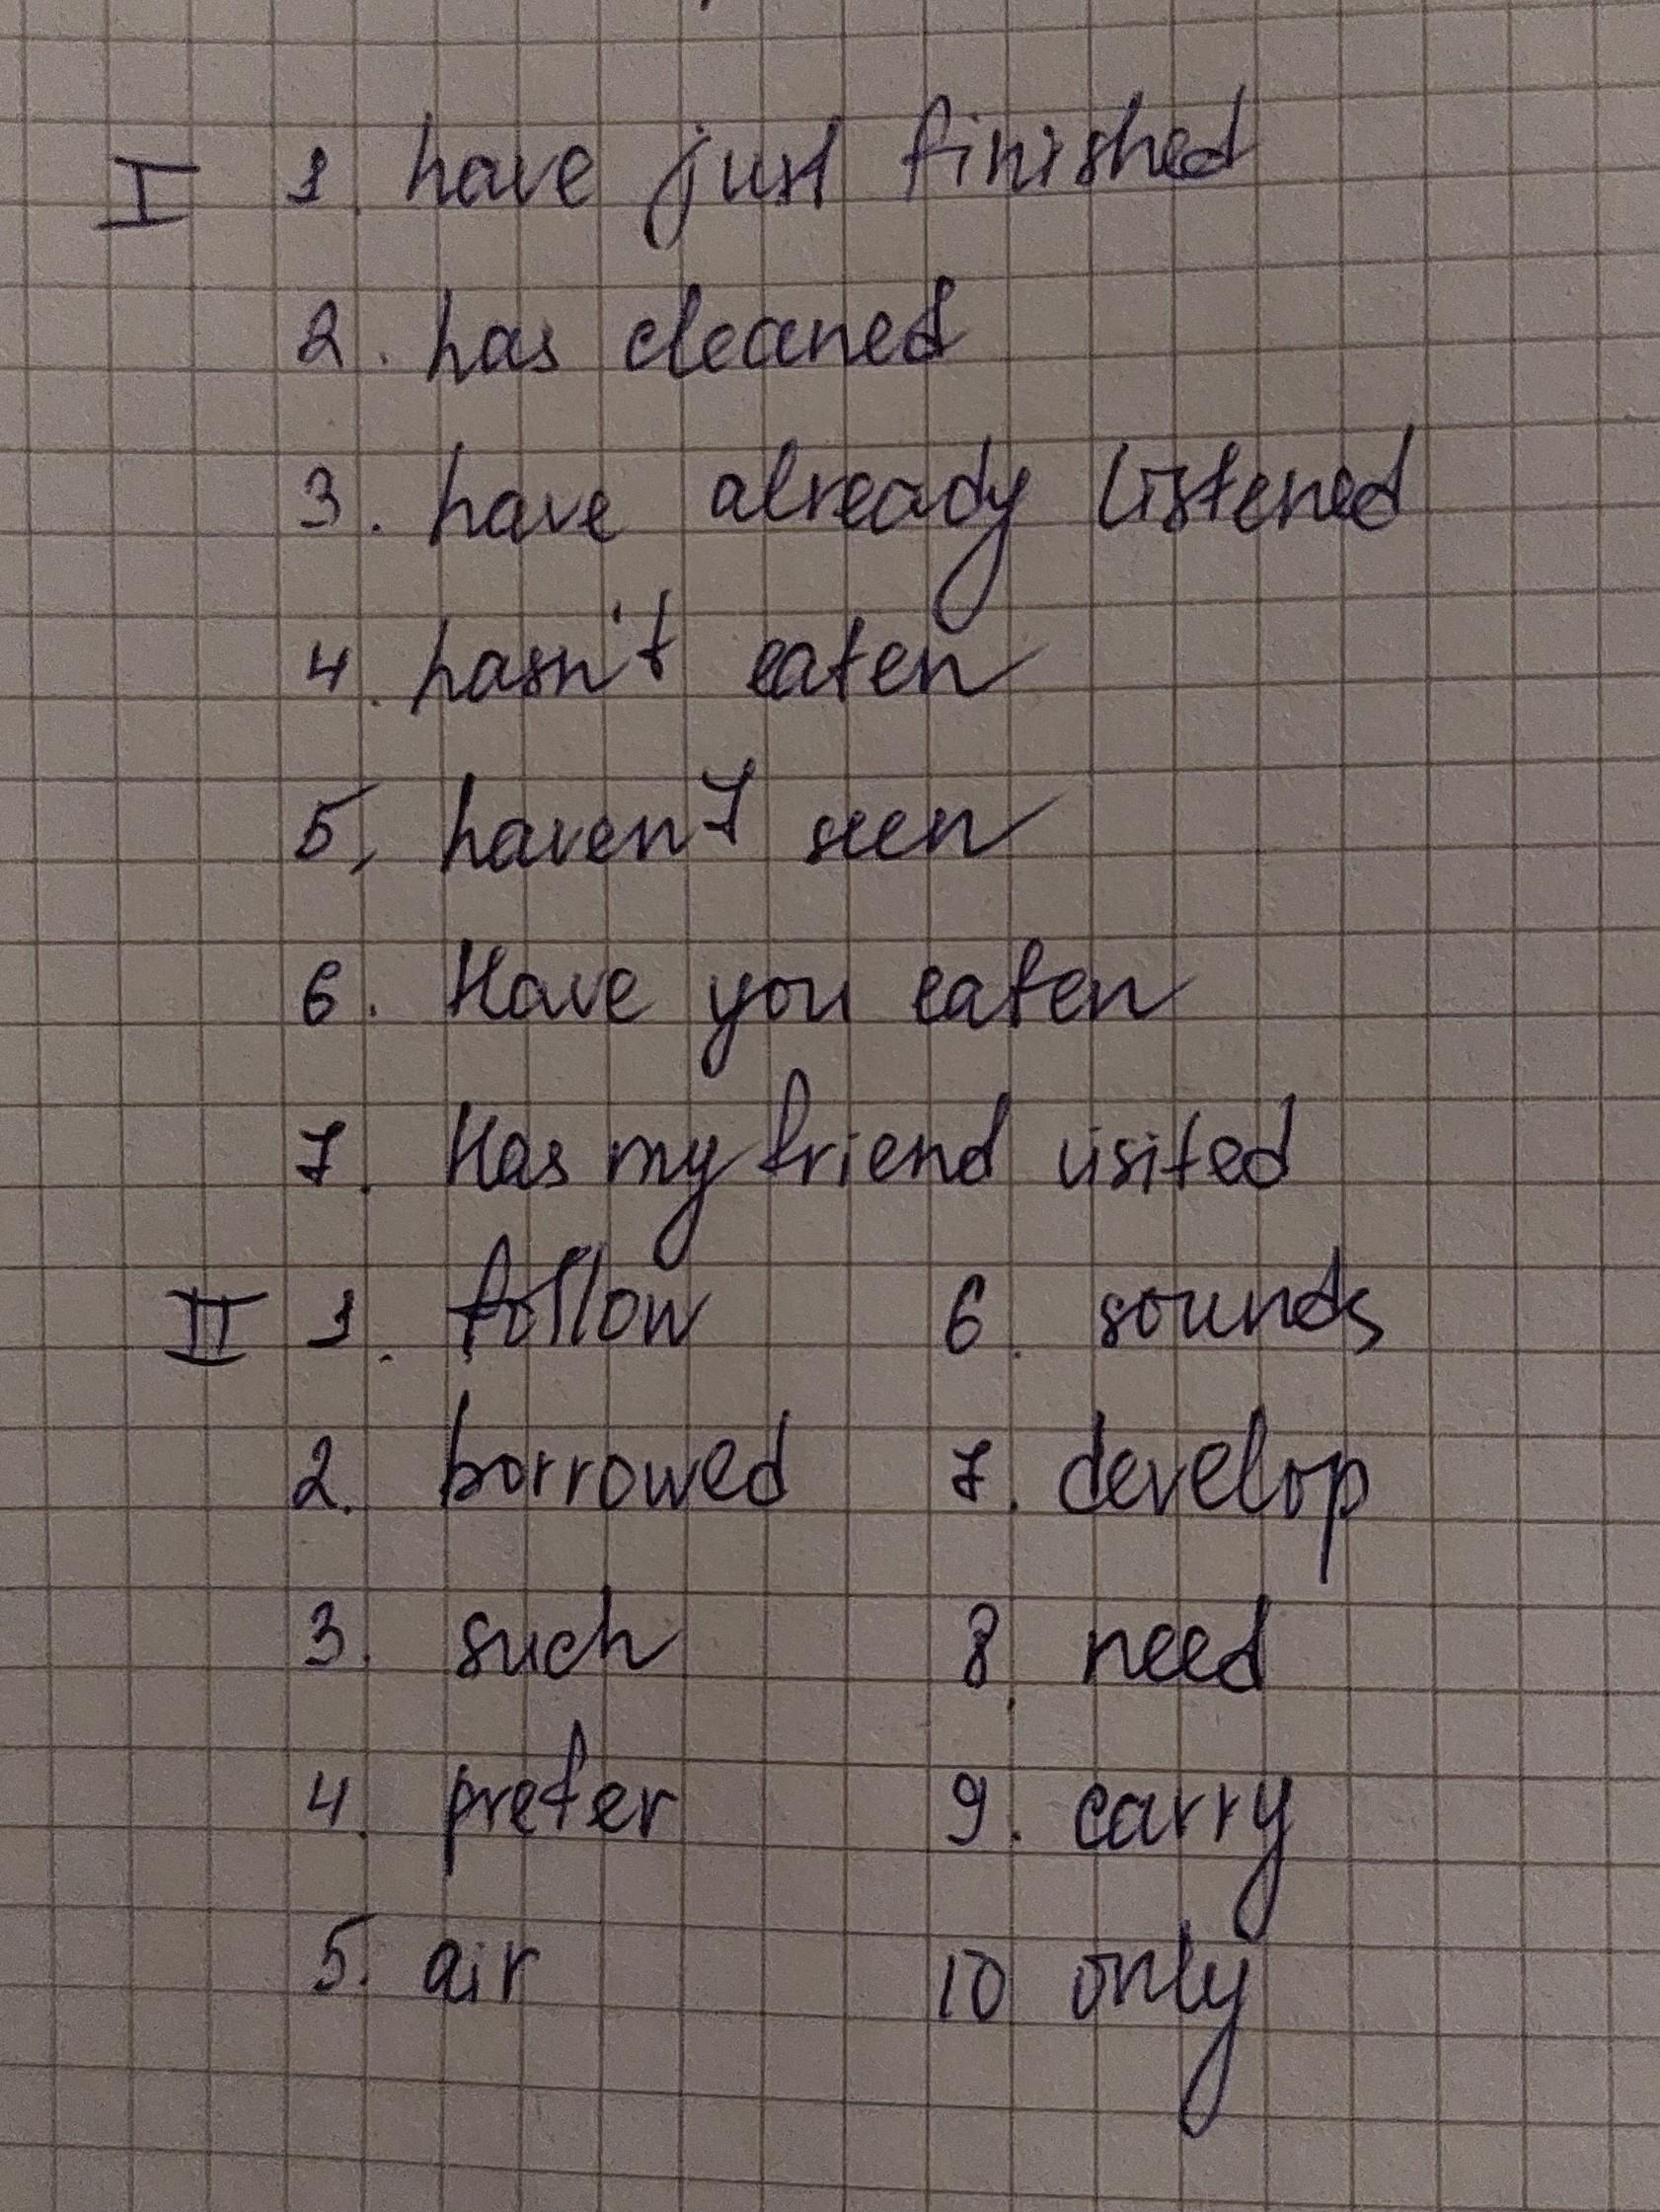 I 1. have just finished
2. has cleaned
3. have already listened
4. hasn't eaten
5. haven't seen
6. Have you eaten
7. Has my friend visited
II 1. follow 6. sounds
2. borrowed 7. develop
3. such 8. need
4. prefer 9. carry
5. air 10 only